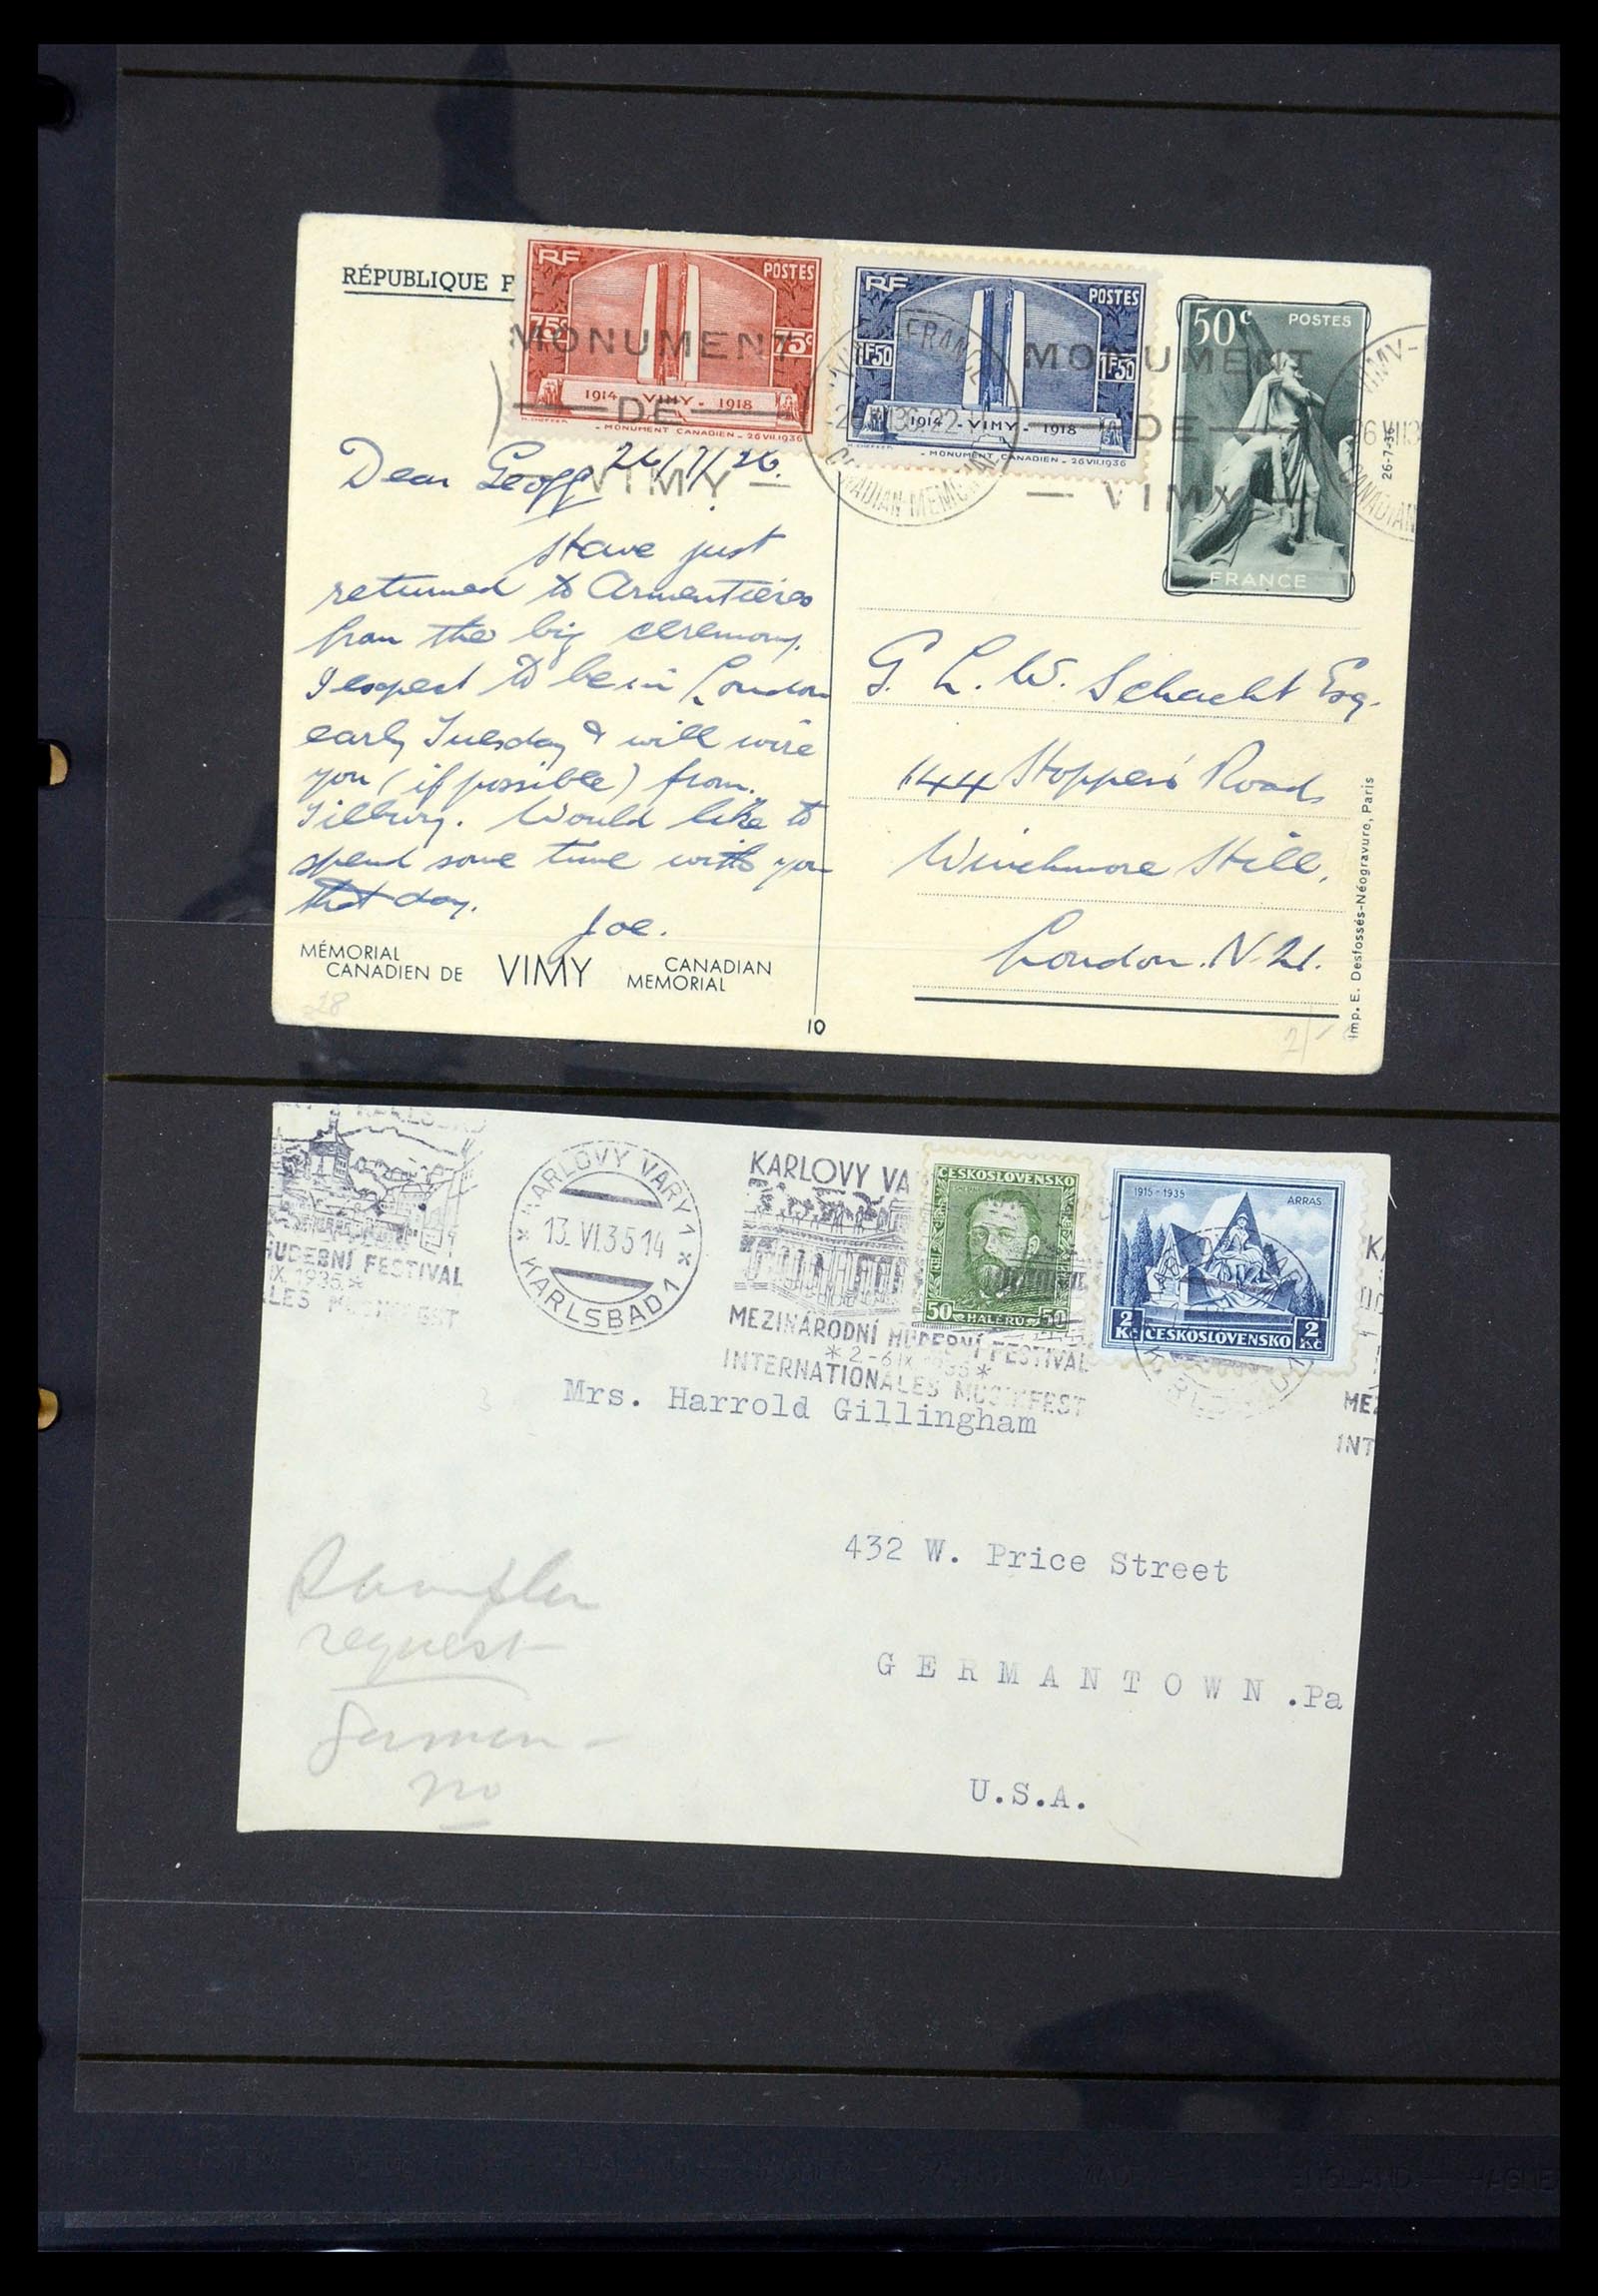 RÉPUBLIQUE F
RF POSTES
75c 75c
1914 - VIMY - 1918
- MONUMENT CANADIEN - 26 VII.1936
RF POSTES
1F50 1F50
1914 - VIMY - 1918
- MONUMENT CANADIEN - 26 VII.1936
50c POSTES
FRANCE
26-7-36
MONUMENT
DE
VIMY
MONUMENT
DE
VIMY
FRANCE
CANADIAN MEMORIAL
VIMY-
CANADIAN
26/7/36.
Dear Geoff
Have just
returned to Armentières
from the big ceremony.
I expect to be in London
early Tuesday & will wire
you (if possible) from
Tilbury. Would like to
spend some time with you
that day.
Joe.
G. L. W. Schacht Esq.
144 Hoppers Road
Winchmore Hill,
London. N. 21.
MÉMORIAL
CANADIEN DE VIMY CANADIAN
MEMORIAL
18
10
2/-
Imp. E. Desfossés-Néogravure, Paris
HUDEBNÍ FESTIVAL
IX. 1935 *
LES MUSIKFEST
KARLOVY VARY 1
13. VI. 35 14
KARLSBAD 1
KARLOVY VA
MEZINÁRODNÍ HUDEBNÍ FESTIVAL
* 2.-6 IX. 1935 *
INTERNATIONALES MUSIKFEST
ČESKOSLOVENSKO
50 HALÉŘŮ 50
1915-1935 ARRAS
2 Kč ČESKOSLOVENSKO 2 Kč
KA
MEZ
INT
Mrs. Harrold Gillingham
432 W. Price Street
GERMANTOWN .Pa
U.S.A.
request
German -
no
ENGLAND